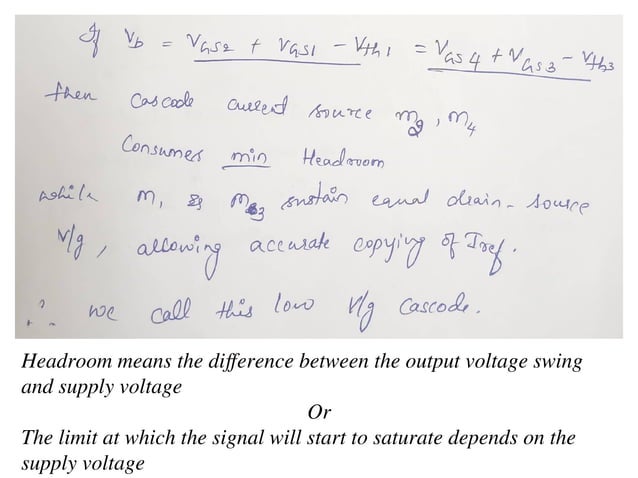 If Vb = VGS2 + VGS1 - Vth1 = VGS4 + VGS3 - Vth3
then Cascode current source m3, m4
Consumes min Headroom
while m1 & m3 sustain equal drain-source
V/g, allowing accurate copying of Iref.
∴ we call this low V/g Cascode.
Headroom means the difference between the output voltage swing
and supply voltage
Or
The limit at which the signal will start to saturate depends on the
supply voltage